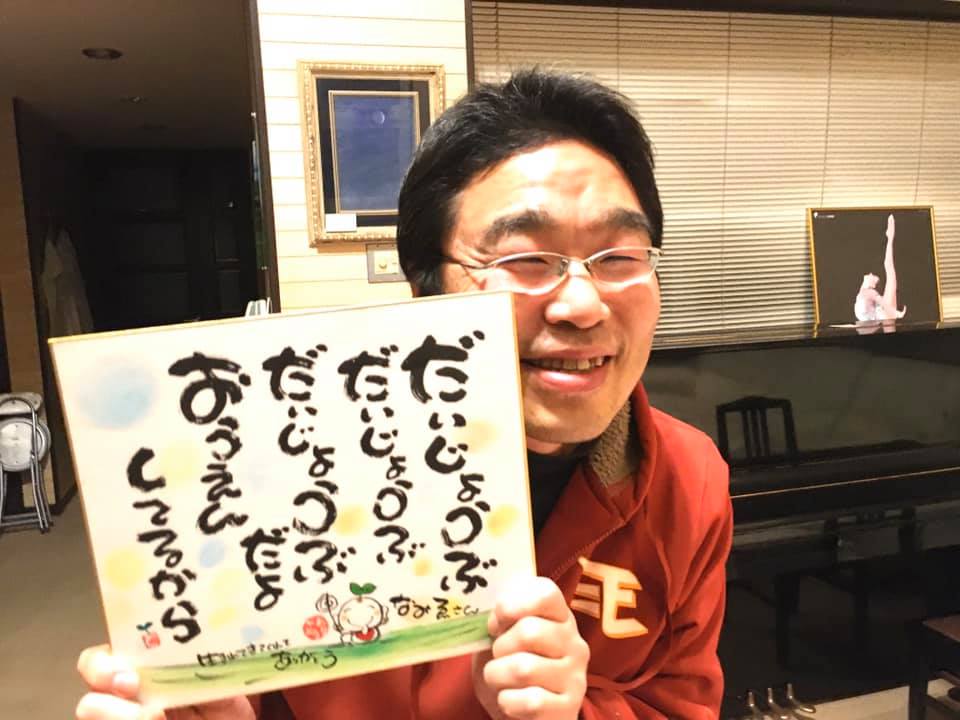 だいじょうぶ
だいじょうぶ
だいじょうぶ
だよ
おうえん
してるから
なみゑさん
ありがとう